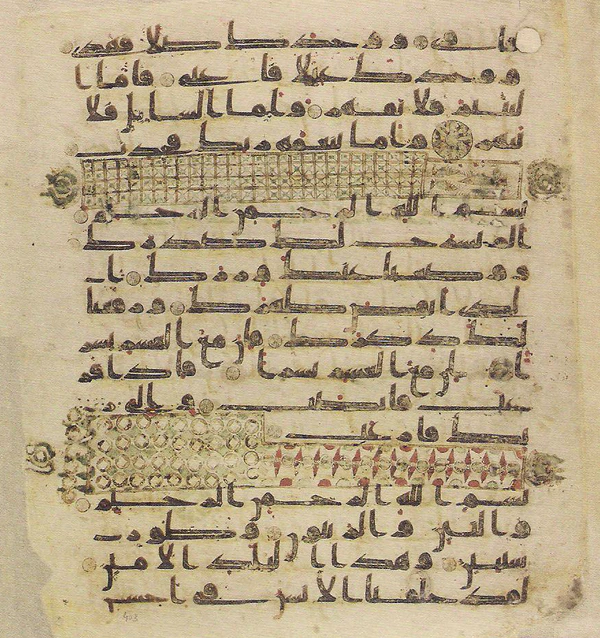 فاوى ووجدك ضالا فهدى
ووجدك عيلا فاغنى فاما ا
ليتيم فلا تقهر واما السايل فلا
تنهر واما بنعمة ربك فحدث
بسم الله الرحمن الرحيم
الم نشرح لك صدرك
ووضعنا عنك وزرك ا
لذي انقض ظهرك ورفعنا
لك ذكرك فان مع العسر يسر
ا ان مع العسر يسرا فاذا فر
غت فانصب والى ر
بك فارغب
بسم الله الرحمن الرحيم
والتين والزيتون وطور
سينين وهذا البلد الامين
لقد خلقنا الانسن في احسن